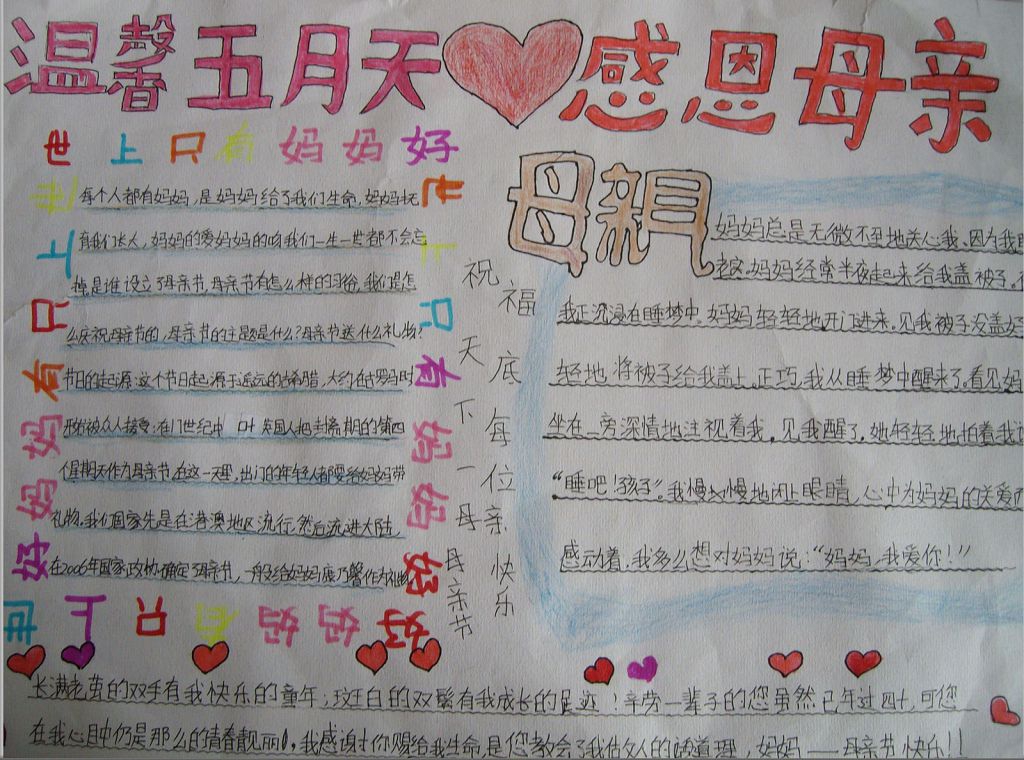 温馨五月天 感恩母亲
世上只有妈妈好
每个人都有妈妈,是妈妈给了我们生命,妈妈抚
育我们长大,妈妈的爱妈妈的吻我们一生一世都不会忘
掉,是谁设立了母亲节,母亲节有怎么样的习俗,我们是怎
么庆祝母亲节的,母亲节的主题是什么?母亲节送什么礼物?
节日的起源:这个节日起源于遥远的古希腊,大约在古罗马时
形被众人接受;在17世纪中叶英国人把封斋期的第四
个星期天作为母亲节,在这一天里,出门的年轻人都要给妈妈带
礼物,我们国家先是在港澳地区流行,然后流进大陆
在2006年国家政协确定了母亲节,一般给妈妈康乃馨作为礼物
世上只有妈妈好
上只有妈妈好
世上只有妈妈好
祝福
天底下每一位母亲
母亲节快乐
母亲
妈妈总是无微不至地关心我,因为我
妈妈经常半夜起来给我盖被子,
我正沉浸在睡梦中,妈妈轻轻地开门进来,见我被子没盖好
轻地将被子给我盖上,正巧,我从睡梦中醒来了,看见妈
坐在一旁深情地注视着我,见我醒了,她轻轻地拍着我
“睡吧!孩子”,我慢慢地闭上眼睛,心中为妈妈的关爱而
感动着,我多么想对妈妈说:“妈妈,我爱你!”
长满老茧的双手有我快乐的童年;斑白的双鬓有我成长的足迹!辛劳一辈子的您虽然已年过四十,可您
在我心目中仍是那么的青春靓丽,我感谢你赐给我生命,是您教会了我做人的道理,妈妈——母亲节快乐!!